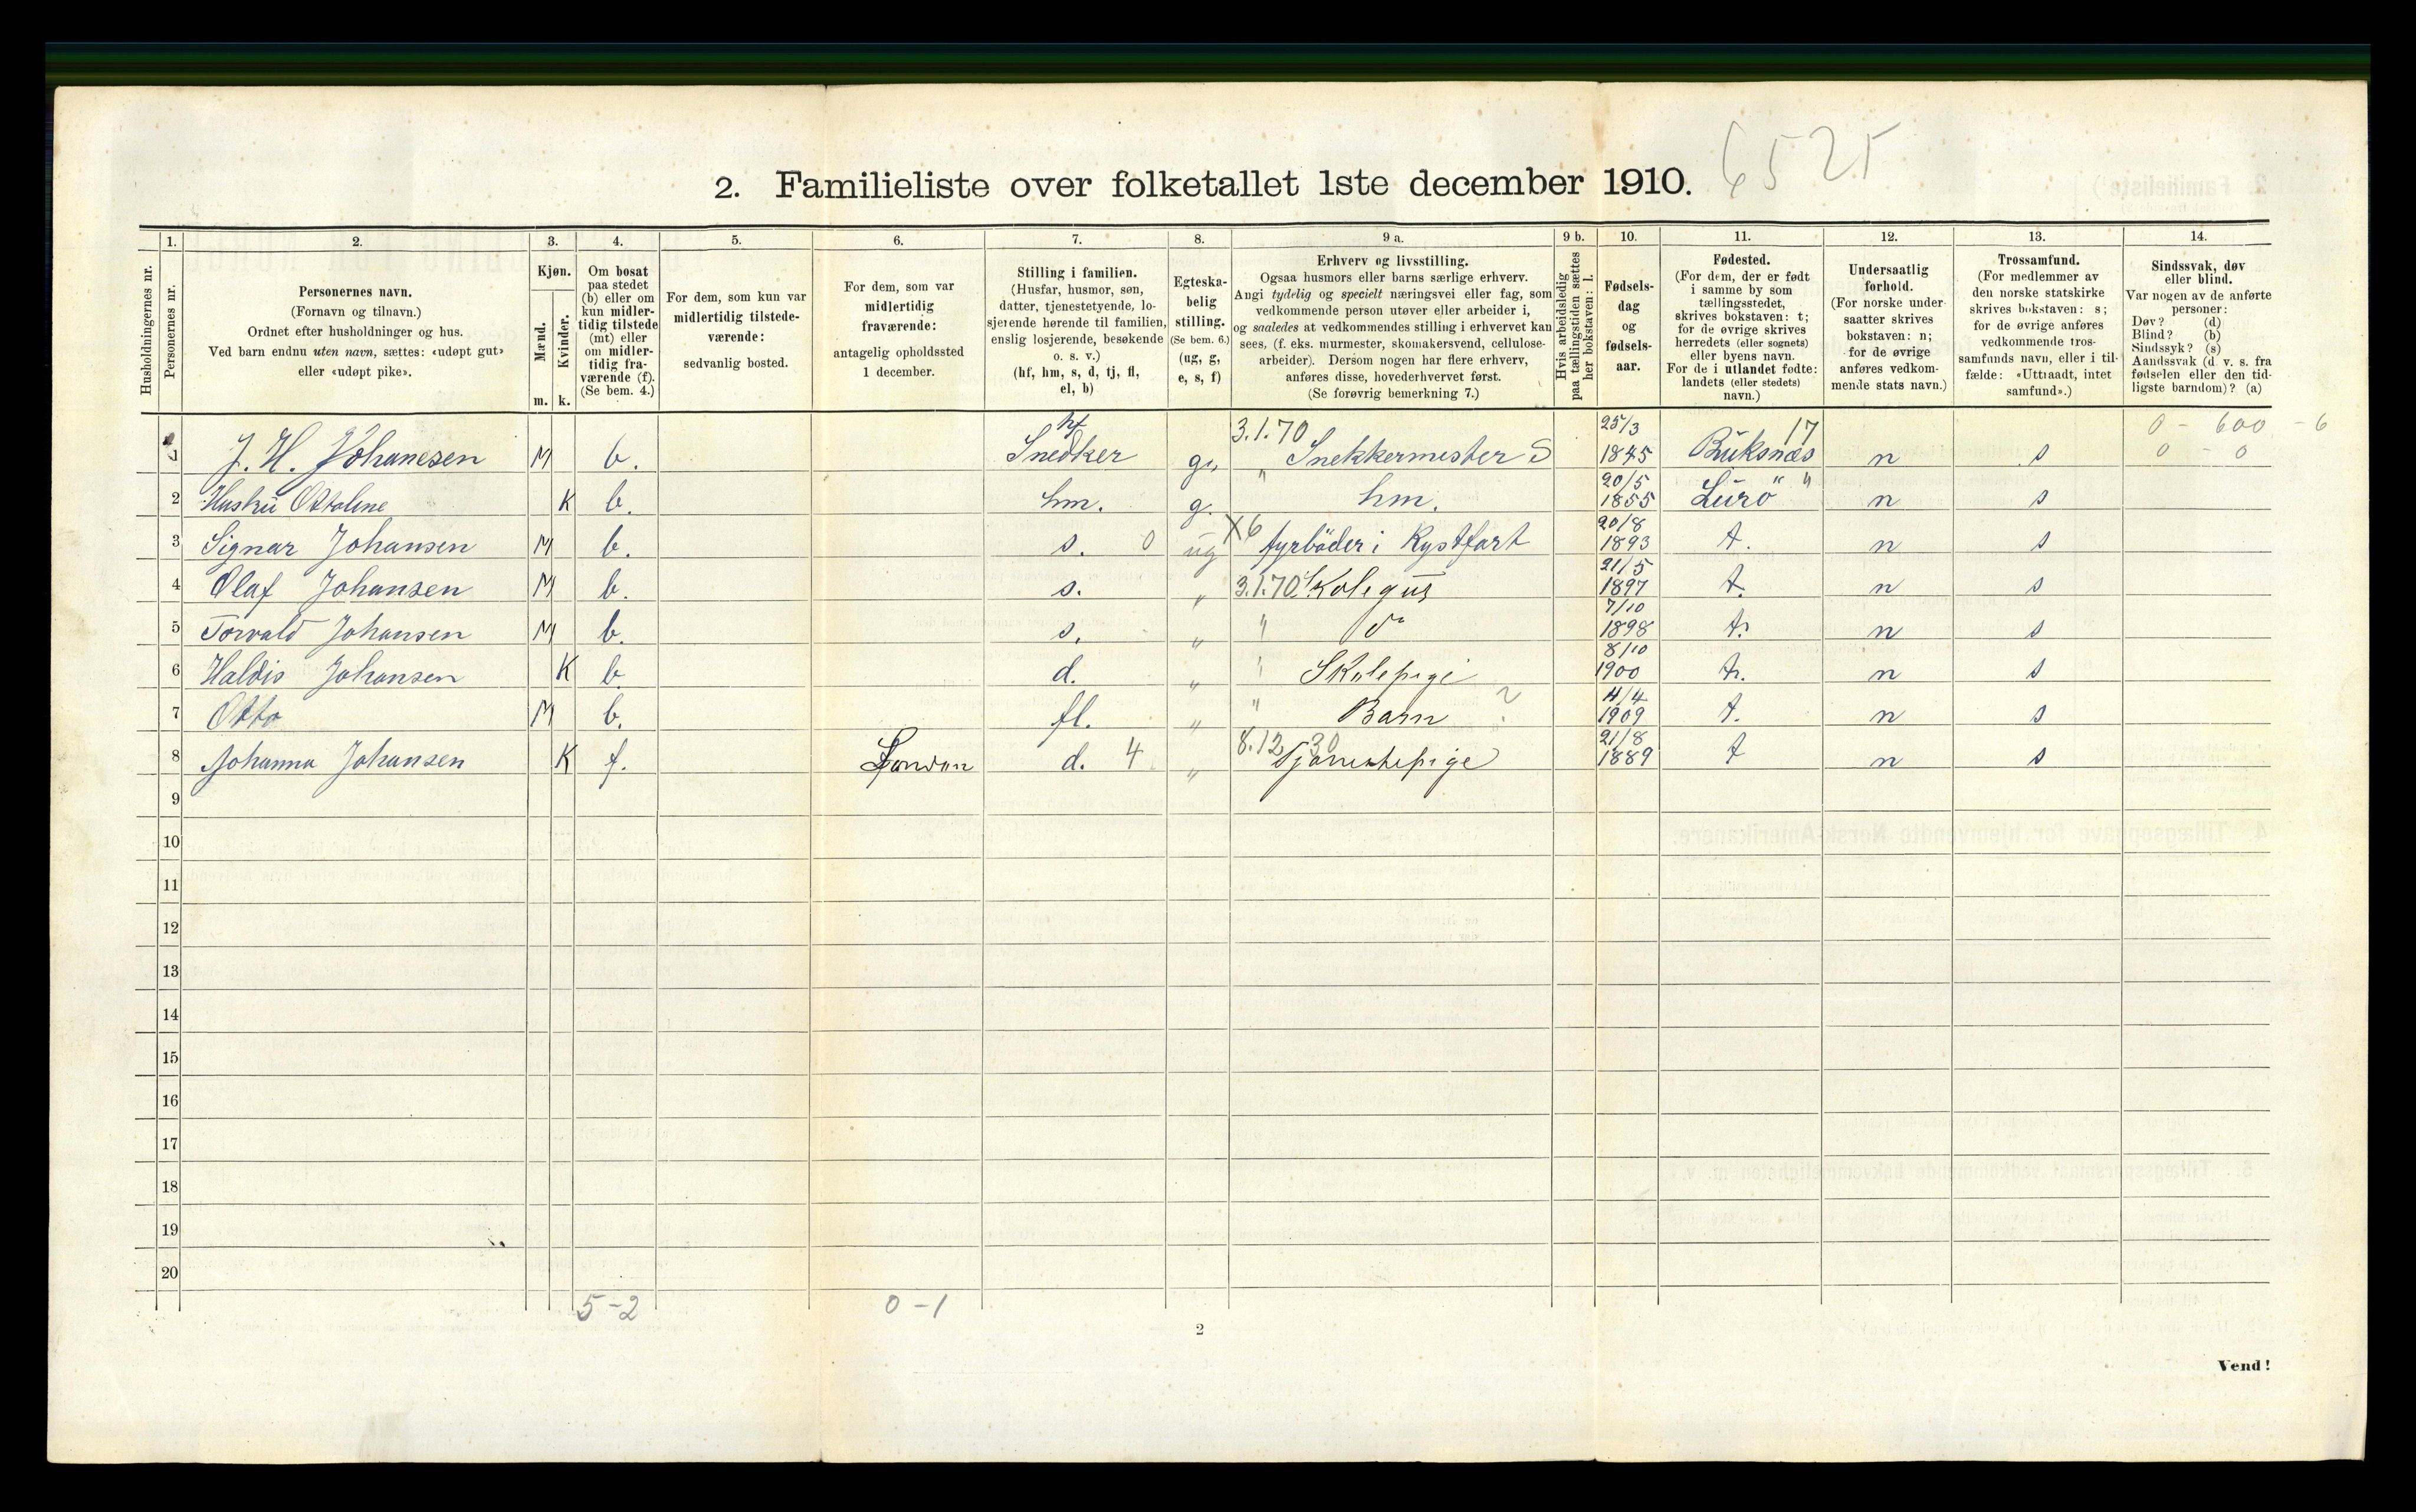 2. Familieliste over folketallet 1ste december 1910. 6525
Husholdningernes nr.
1. Personernes nr.
2. Personernes navn. (Fornavn og tilnavn.) Ordnet efter husholdninger og hus. Ved barn endnu uten navn, sættes: «udøpt gut» eller «udøpt pike».
3. Kjøn. Mænd. m. Kvinder. k.
4. Om bosat paa stedet (b) eller om kun midlertidig tilstede (mt) eller om midlertidig fraværende (f). (Se bem. 4.)
5. For dem, som kun var midlertidig tilstedeværende: sedvanlig bosted.
6. For dem, som var midlertidig fraværende: antagelig opholdssted 1 december.
7. Stilling i familien. (Husfar, husmor, søn, datter, tjenestetyende, losjerende hørende til familien, enslig losjerende, besøkende o. s. v.) (hf, hm, s, d, tj, fl, el, b)
8. Egteskabelig stilling. (Se bem. 6.) (ug, g, e, s, f)
9 a. Erhverv og livsstilling. Ogsaa husmors eller barns særlige erhverv. Angi tydelig og specielt næringsvei eller fag, som vedkommende person utøver eller arbeider i, og saaledes at vedkommendes stilling i erhvervet kan sees, (f. eks. murmester, skomakersvend, cellulosearbeider). Dersom nogen har flere erhverv, anføres disse, hovederhvervet først. (Se forøvrig bemerkning 7.)
9 b. Hvis arbeidsledig paa tællingstiden sættes her bokstaven: l.
10. Fødselsdag og fødselsaar.
11. Fødested. (For dem, der er født i samme by som tællingsstedet, skrives bokstaven: t; for de øvrige skrives herredets (eller sognets) eller byens navn. For de i utlandet fødte: landets (eller stedets) navn.)
12. Undersaatlig forhold. (For norske undersaatter skrives bokstaven: n; for de øvrige anføres vedkommende stats navn.)
13. Trossamfund. (For medlemmer av den norske statskirke skrives bokstaven: s; for de øvrige anføres vedkommende trossamfunds navn, eller i tilfælde: «Uttraadt, intet samfund».)
14. Sindssvak, døv eller blind. Var nogen av de anførte personer: Døv? (d) Blind? (b) Sindssyk? (s) Aandssvak (d. v. s. fra fødselen eller den tidligste barndom)? (a)
1 J. H. Johanesen M b. hf Snedker g. 3.1.70 " Snekkermester S 25/3 1845 Buksnæs 17 n s 0 - 600 - 6 0 - 0
2 Hustru Ottoline K b. hm. g. hm. 20/5 1855 Lurö " " n s
3 Signar Johansen M b. s. 0 ug X6 fyrböder i Kystfart 20/8 1893 t. n s
4 Olaf Johansen M b. s. " 3.1.70 Skolegut 21/5 1897 t. n s
5 Torvald Johansen M b. s. " " do 7/10 1898 t. n s
6 Haldis Johansen K b. d. " " Skolepige 8/10 1900 t. n s
7 Otto M b. fl. " " Barn ? 4/4 1909 t. n s
8 Johanna Johansen K f. London d. 4 " 8.12.30 Tjenestepige 21/8 1889 t n s
9
10
11
12
13
14
15
16
17
18
19
20
5-2 0-1
2
Vend!